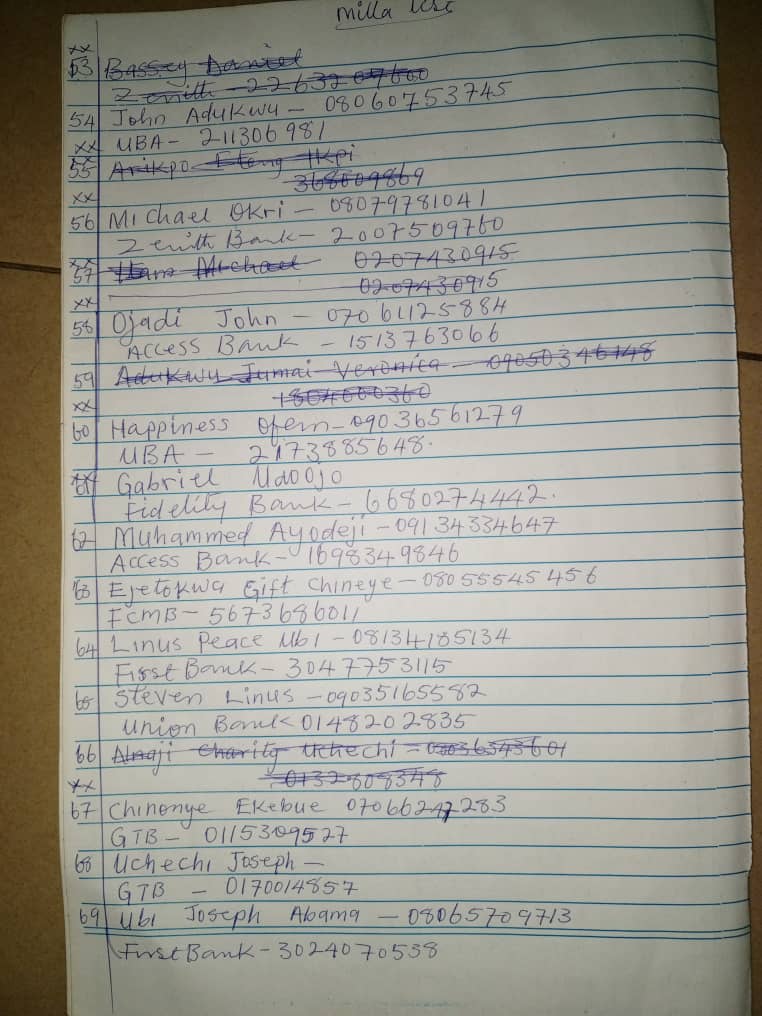 Milla List
xx
53 Bassey Daniel
Zenith - 2263207600
54 John Adukwu - 08060753745
xx UBA - 211306981
55 Arikpo Eteng Ikpi
368009869
xx
56 Michael Okri - 08079781041
Zenith Bank - 2007509760
xx
57 Michael 0207430915
xx 0207430915
58 Ojadi John - 07061125884
Access Bank - 1513763066
59 Adukwu Jumai Veronica - 09050346148
xx 1804600360
60 Happiness Ofem - 09036561279
UBA - 2173885648.
61 Gabriel Udoojo
Fidelity Bank - 6680274442.
62 Muhammed Ayodeji - 09134334647
Access Bank - 1698349846
63 Ejetokwa Gift Chineye - 08055545456
FCMB - 5673686011
64 Linus Peace Ubi - 08134185134
First Bank - 3047753115
65 Steven Linus - 09035165582
Union Bank 0148202835
66 Alnaji Charity Uchechi =
xx 0132808348
67 Chinonye Ekebue
GTB - 0115309527
68 Uchechi Joseph -
GTB - 0170014857
69 Ubi Joseph Abama - 08065709713
First Bank - 3024070538